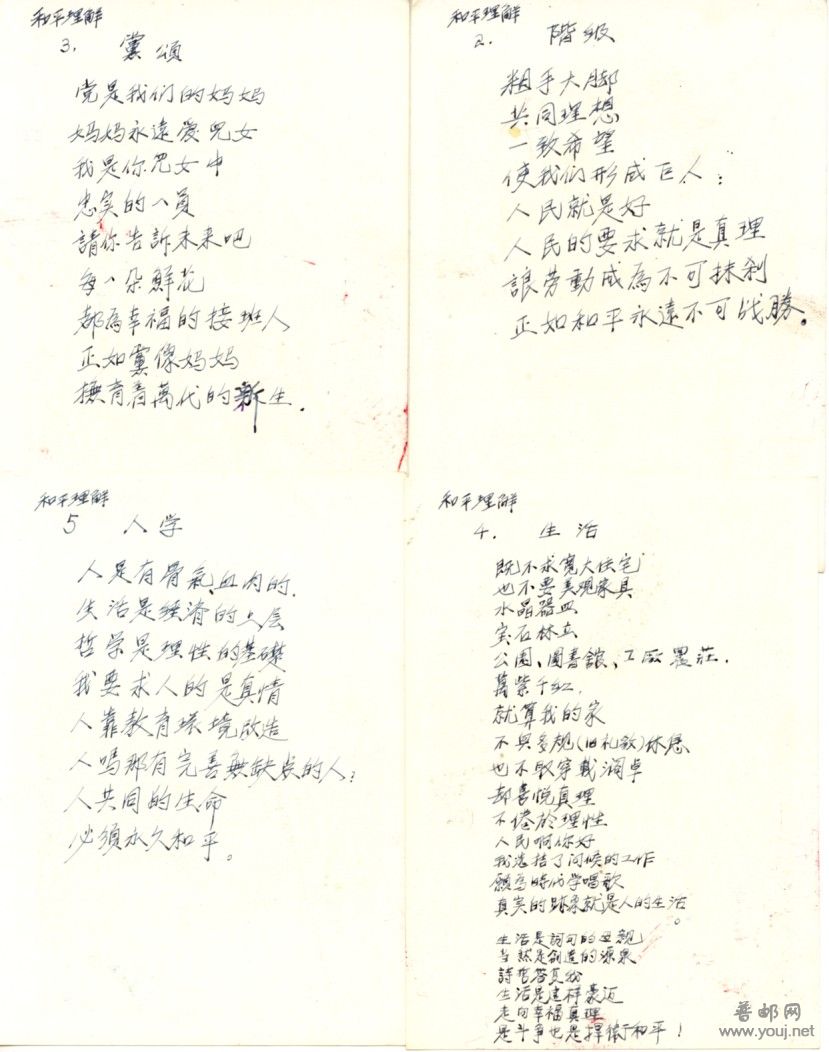 和平理解
3. 黨頌
党是我们的妈妈
妈妈永遠爱児女
我是你児女中
忠实的一員
請你告訴未来吧
每一朵鮮花
都為幸福的接班人
正如黨像妈妈
撫育着萬代的新生.
和平理解
2. 階级
粗手大脚
共同理想
一致希望
使我们形成巨人:
人民就是好
人民的要求就是真理
讓劳動成為不可抹刹
正如和平永遠不可战勝。
和平理解
5 人学
人是有骨氣、血肉的.
生活是经濟的上层
哲学是理性的基礎
我要求人的是真情
人靠教育環境改造
人嗎那有完善無缺点的人;
人共同的生命
必須永久和平。
和平理解
4. 生活
既不求宽大住宅
也不要美观家具
水晶器皿
宝石林立
公園、圖書館、工廠農莊.
萬紫千红.
就算我的家
不與多規(旧礼教)休息
也不取穿戴濶卓
却喜悅真理
不倦於理性
人民啊你好
我总括了问候的工作
願為時代学唱歌
真实的跡象就是人的生活。
生活是詞句的母親
当然是創造的源泉
詩哲答复我
生活是这样豪迈
走向幸福真理
是斗争也是捍衛和平!
普邮网
www.youj.net